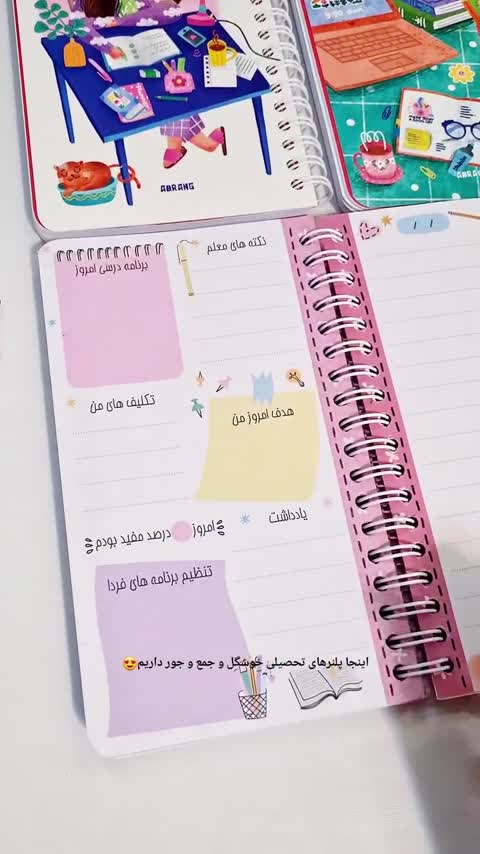 ABRANG
ABRANG
نکته های معلم
برنامه درسی امروز
تکلیف های من
هدف امروز من
یادداشت
امروز درصد مفید بودم
تنظیم برنامه های فردا
اینجا پلنرهای تحصیلی خوشگل و جمع و جور داریم😍